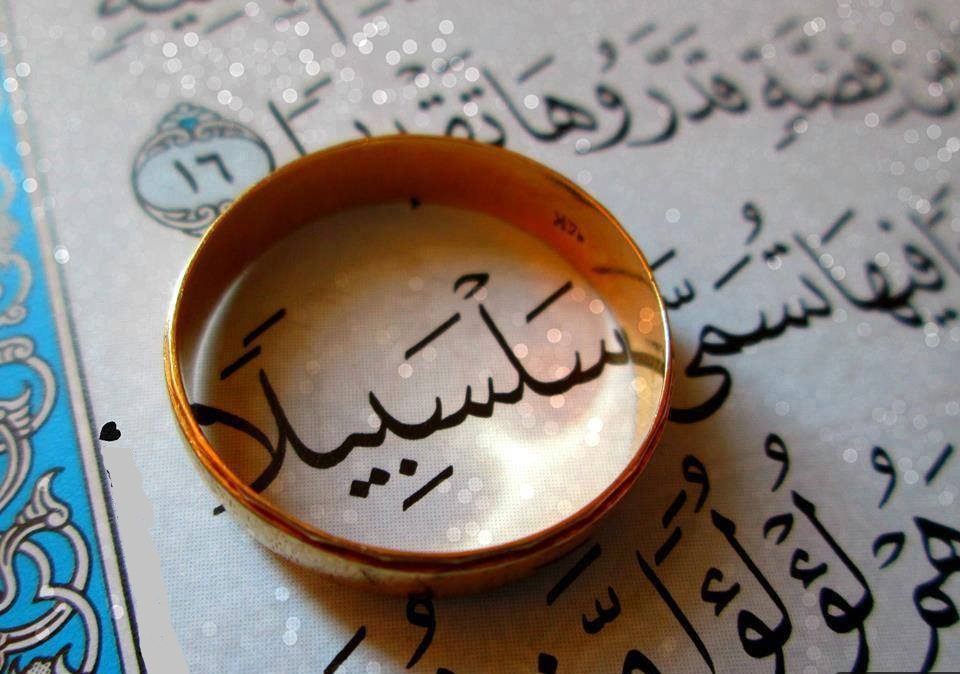 فِضَّةٍ قَدَّرُوهَا تَقْدِيرًا ١٦
فِيهَا تُسَمَّىٰ سَلْسَبِيلًا
هُمْ لُؤْلُؤًا